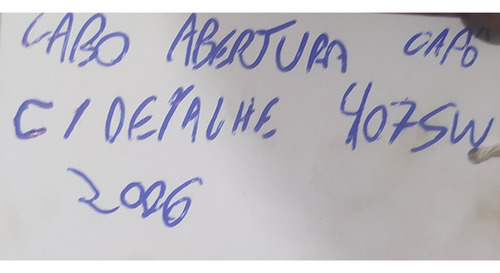 CABO ABERTURA CAPO
C/ DETALHE 407SW
2006